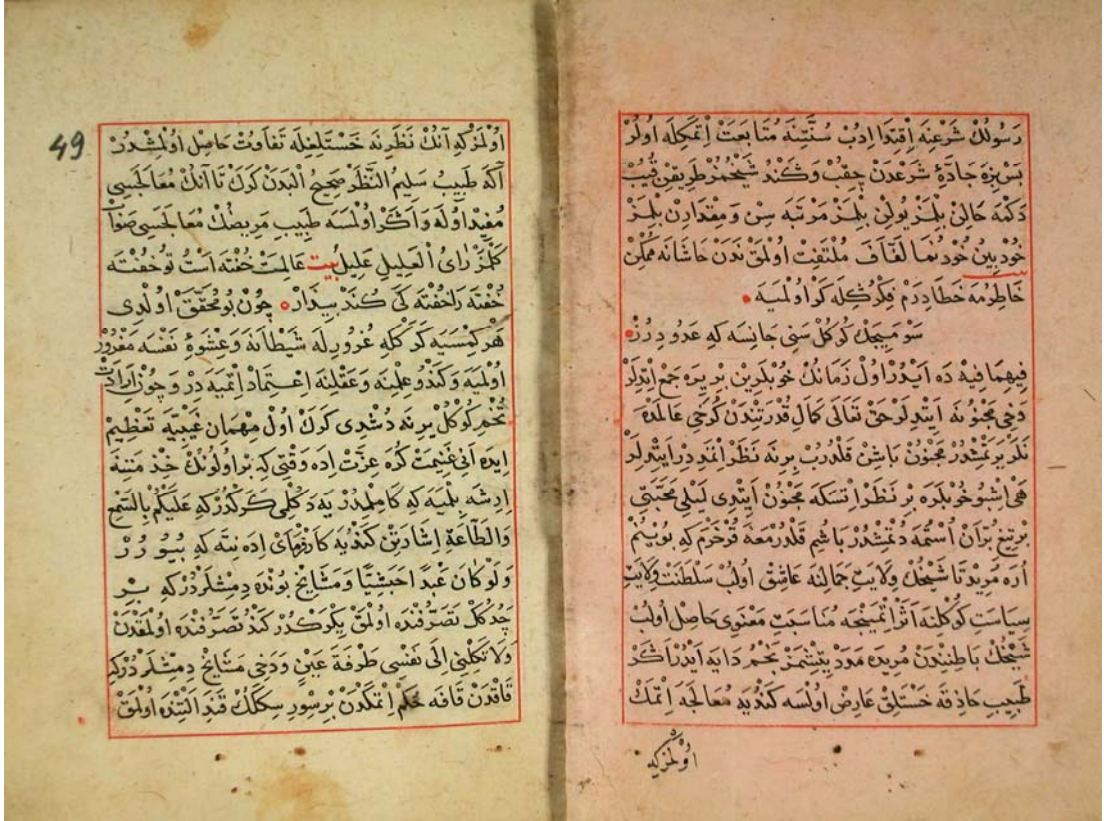 رَسُولُكْ شَرْعِنَه اِقْتِدَا اِدُبْ سُنَّتِنَه مُتَابَعَتْ اِتْمَكِلَه اُولُرْ
بَسْ بِزَه جَادَّۀِ شَرْعَدَنْ چِقُبْ وَكَنْدُ شَيْخُمُزْ طَرِيقِنْ قُيُبْ
دَكْمَه حَالِنْ بِلْمَزْ يُولِنْ بِلْمَزْ مَرْتَبَه سِنْ وَمِقْدَارِنْ بِلْمَزْ
خُودْبِينْ خُودْنُمَا لَفَّافَ مُلْتَفِتْ اُولْمَقْ نَدَنْ حَاشَانَه مُمْكِنْ
خَاطِرِمَه خَطَادَرَمْ فِكْرُكِلَه كَرْ اُولْمَيَه
سَوْمَيِجَكْ كُوكُلْ سَنِي جَانِسَه كِه عَدُودُرُزْ
فِيهِمَا فِيهْ دَه اَيْدُرْ اُولْ زَمَانُكْ خُوبْلَرِينْ بِرْ يِرَه جَمْع اِتْدِلَرْ
دَخِي مَجْنُونَه اَيْتِدِلَرْ حَقْ تَعَالَى كَمَالِ قُدْرَتِنْدَنْ كُرْخِي عَالَمْدَه
نَلَرْ يَرَتْمِشْدُرْ مَجْنُونْ بَاشِنْ قَلْدُرُبْ بِرِنَه نَظَرْ اِتْمَدِ دِرْ اَيْتِدِلَرْ
هَيْ اِشْبُو خُوبْلَرَه بِرْ نَظَرْ اِتْسَكَه مَجْنُونْ اَيْتِدِي لَيْلِي مَحَبَّتِي
بِرْ تِيغِ بُرَّانْ اُسْتُمَه دُتْمِشْدُرْ بَاشُمِ قَلْدُرْمَغَه قُرْخَرَمْ كِه بُويْنُمْ
اُرَه مُرِيدْ تَا شَيْخُكْ وِلَايَتِ جَمَالِنَه عَاشِقْ اُولُبْ سَلْطَنَتِ وِلَايَتِ
سِيَاسَتِ كُوكْلِنَه اَثَرْ اِتْمَيِنْجَه مُنَاسَبَتِ مَعْنَوِي حَاصِلْ اُولُبْ
شَيْخُكْ بَاطِنِنْدَنْ مُرِيدَه مَدَدْ يِتِشْمَزْ نَجْمِ دَايَه اَيْدُرْ اَكَرْ
طَبِيبِ حَاذِقَه خَسْتَلِقْ عَارِضْ اُولْسَه كَنْدُيَه مُعَالَجَه اِتْمَكْ
اُولْمَزْكِه
49
اُولْمَزْكِه اَنُكْ نَظَرِنَه خَسْتَلِغِلَه تَفَاوُتْ حَاصِلْ اُولْمِشْدُرْ
اَكَه طَبِيبِ سَلِيمُ النَّظَرْ صَحِيحُ الْبَدَنْ كَرَكْ تَا اَنُكْ مُعَالَجَسِي
مُفِيدْ اُولَه وَاَكَرْ اُولْمَسَه طَبِيبِ مَرِيضُكْ مُعَالَجَسِي صَوَابْ
كَلْمَزْ رَاىُ الْعَلِيلِ عَلِيلْ بيت عَالِمَتْ خُفْتَه اَسْتْ تُو خُفْتَه
خُفْتَه رَا خُفْتَه كَيْ كُنَدْ بِيدَارْ چُونْ بُو مُحَقَّقْ اُولْدِي
هَرْ كِمْسَيَه كَرَكْلِه غُرُورِلَه شَيْطَانَه وَعِشْوَۀِ نَفْسَه مَغْرُورْ
اُولْمَيَه وَكَنْدُو عِلْمِنَه وَعَقْلِنَه اِعْتِمَادْ اِتْمَيَه دِرْ وَچُونْ اِرَادَتْ
تُخْمِ كُوكُلْ يِرِنَه دُشْدِي كَرَكْ اُولْ مِهْمَانِ غَيْبِيَّه تَعْظِيمْ
اِيدَه اَنِي غَنِيمَتْ كُرَه عِزَّتْ اِدَه وَقْتِي كِه بِرْ اُولُونُكْ خِدْمَتِنَه
اِرِشَه بِلْمَيَه كِه كَامِلْمِدُرْ يَه دَكْلِي كَرَكْدُرْكِه عَلَيْكُمْ بِالسَّمْعِ
وَالطَّاعَةِ اِشَارَتِنْ كَنْدُيَه كَارْفَرْمَاىْ اِدَه نِتَه كِه بُيُورُرْ
وَلَوْ كَانَ عَبْدًا حَبَشِيًّا وَمَشَايِخْ بُونْدَه دِمِشْلَرْدُرْكِه بِرْ
چَدُكُكْ تَصَرُّفِنْدَه اُولْمَقْ يِكْرَكْدُرْ كَنْدُ تَصَرُّفِنْدَه اُولْمَقْدَنْ
وَلَا تَكِلْنِي اِلَى نَفْسِي طَرْفَةَ عَيْنٍ وَدَخِي مَشَايِخْ دِمِشْلَرْدُرْكِه
قَافْدَنْ قَافَه حُكْمْ اِتْمَكْدَنْ بِرْ سِكَكُكْ قَنَدْ اَلْتِنْدَه اُولْمَقْ